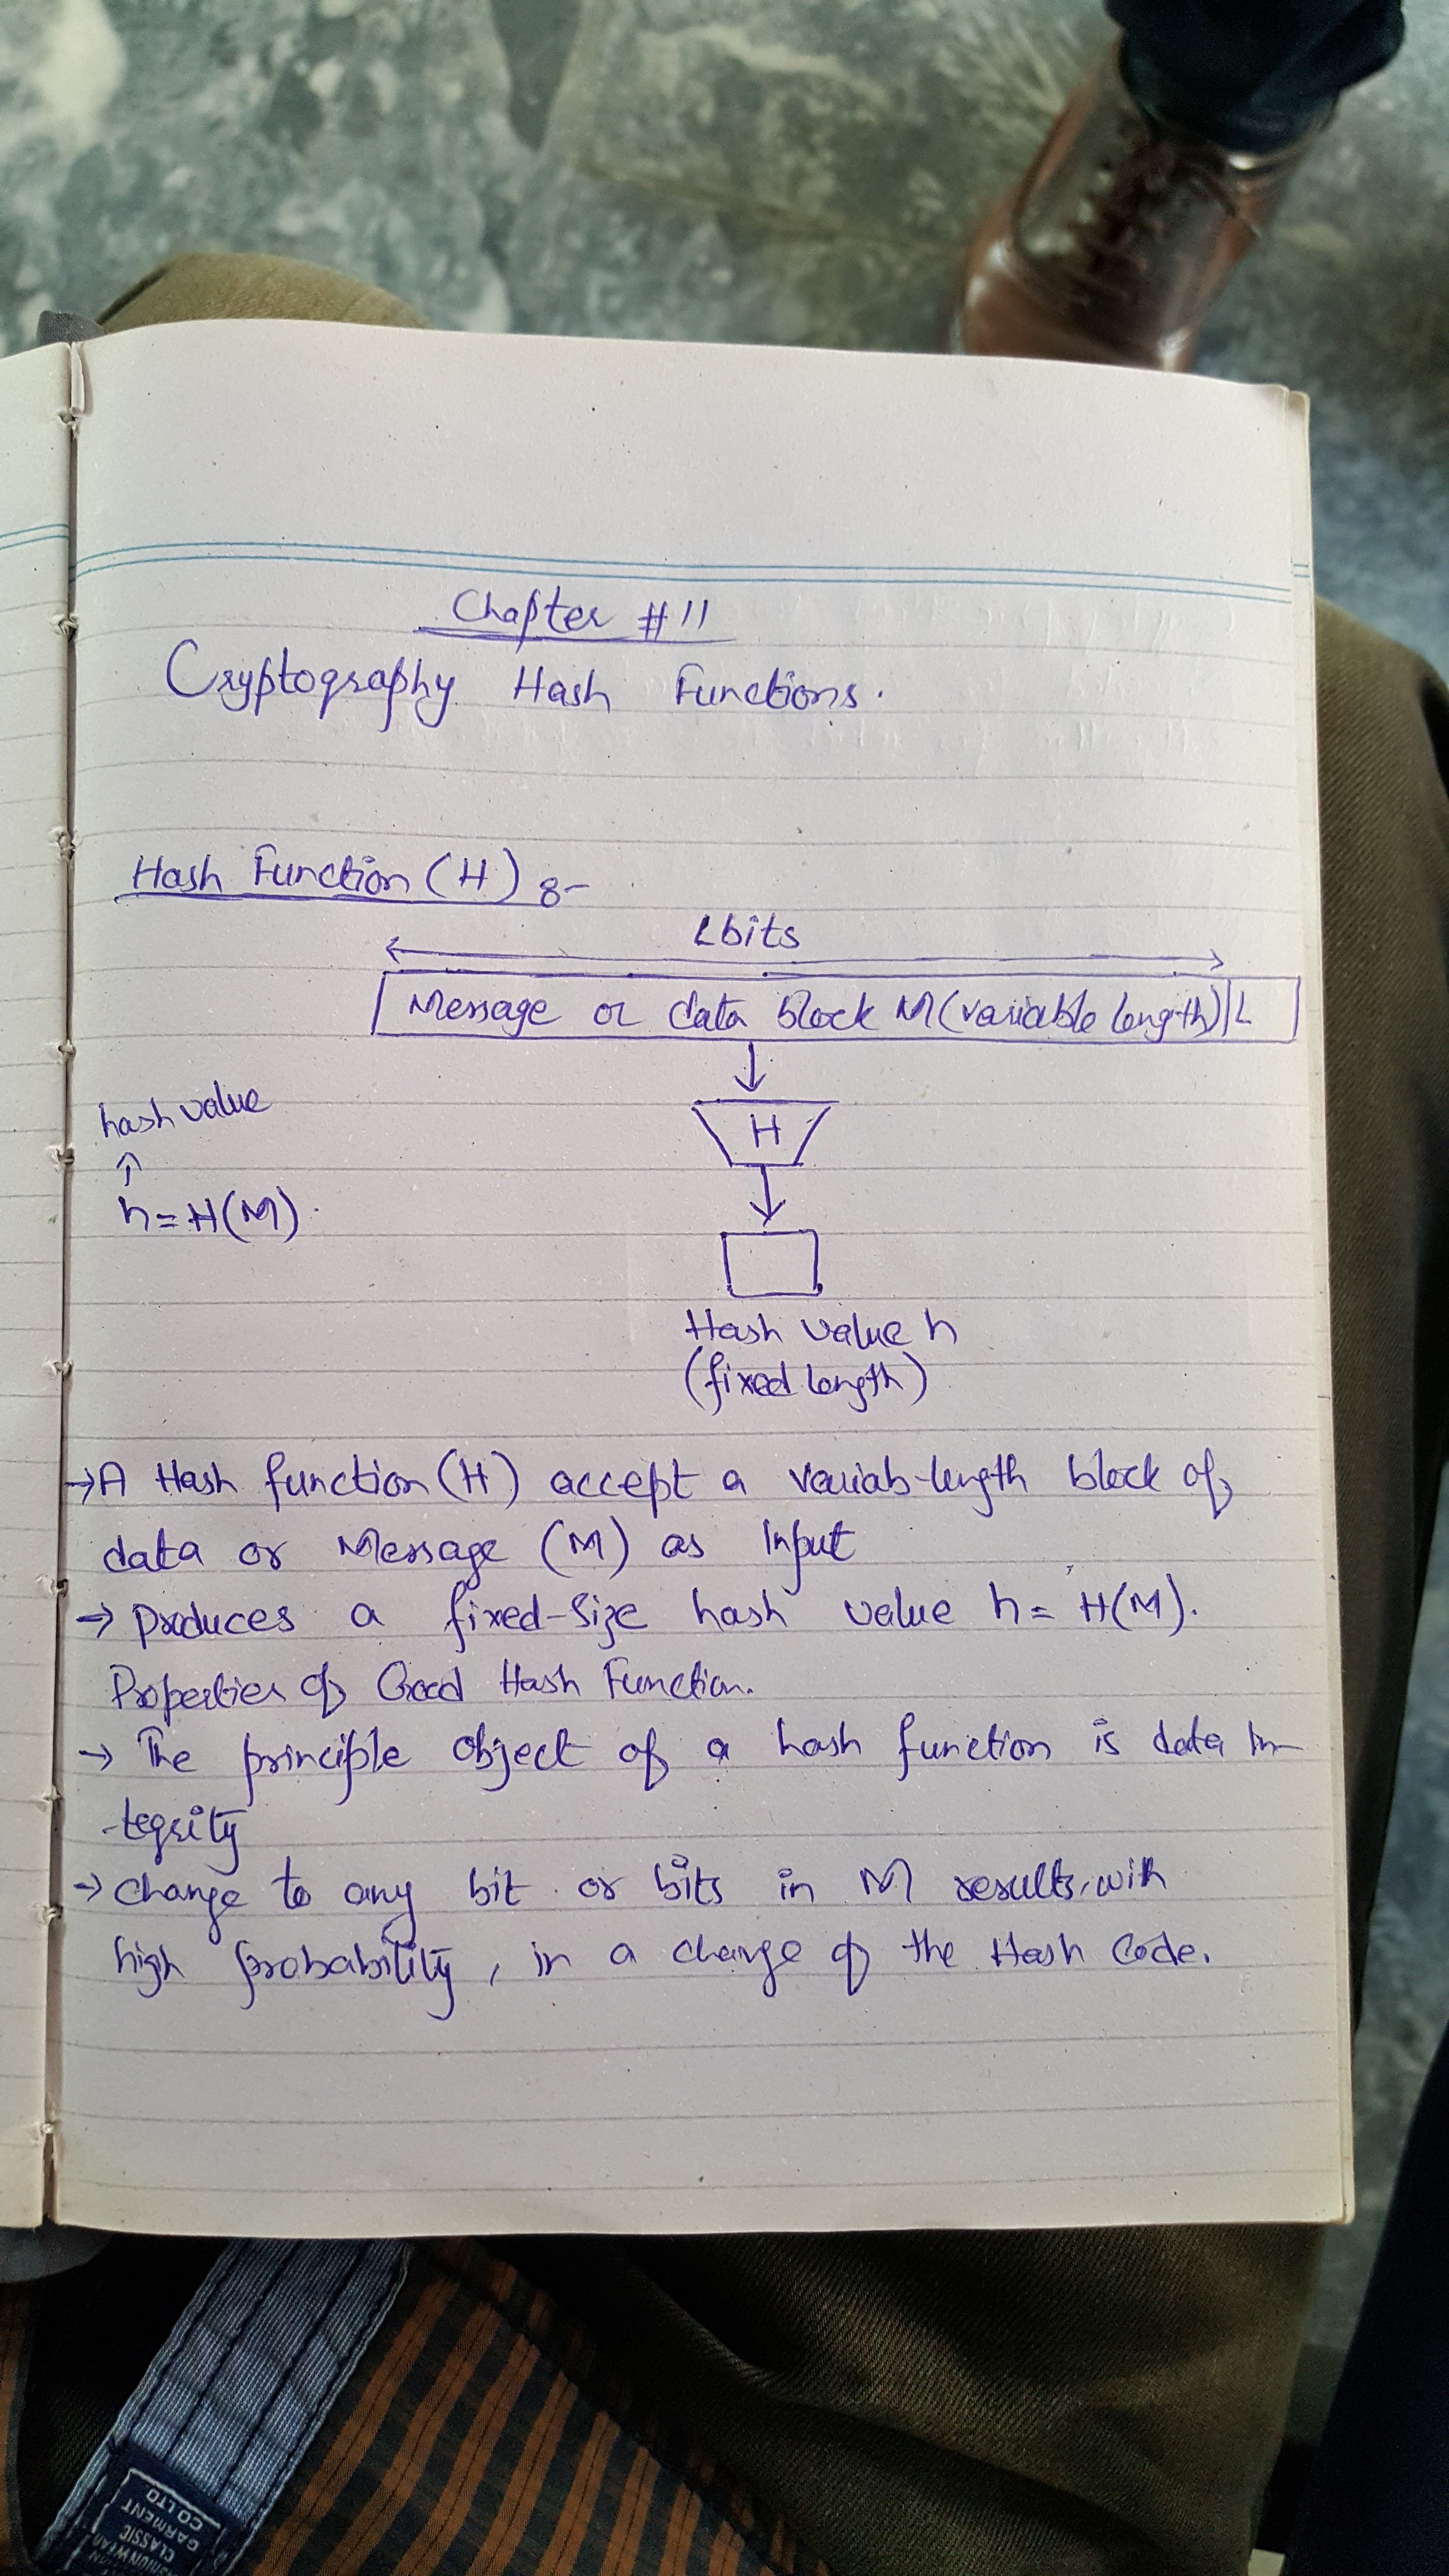 Chapter #11
Cryptography Hash Functions.
Hash Function (H) :-
L bits
Message or data block M (variable length) L
hash value
h = H(M).
H
Hash value h
(fixed length)
→ A Hash function (H) accept a variab-length block of
data or Message (M) as Input
→ produces a fixed-size hash value h = H(M).
Properties of Good Hash Function.
→ The principle object of a hash function is data In-
-tegrity
→ change to any bit or bits in M results, with
high probability, in a change of the Hash Code.
CLASSIC
GARMENT
CO.LTD